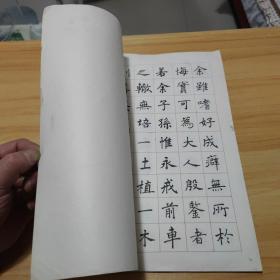 余雖嗜好成癖無所於
悔實可為大人殷鑒者
若余子孫惟永戒前車
之轍無培一土植一木